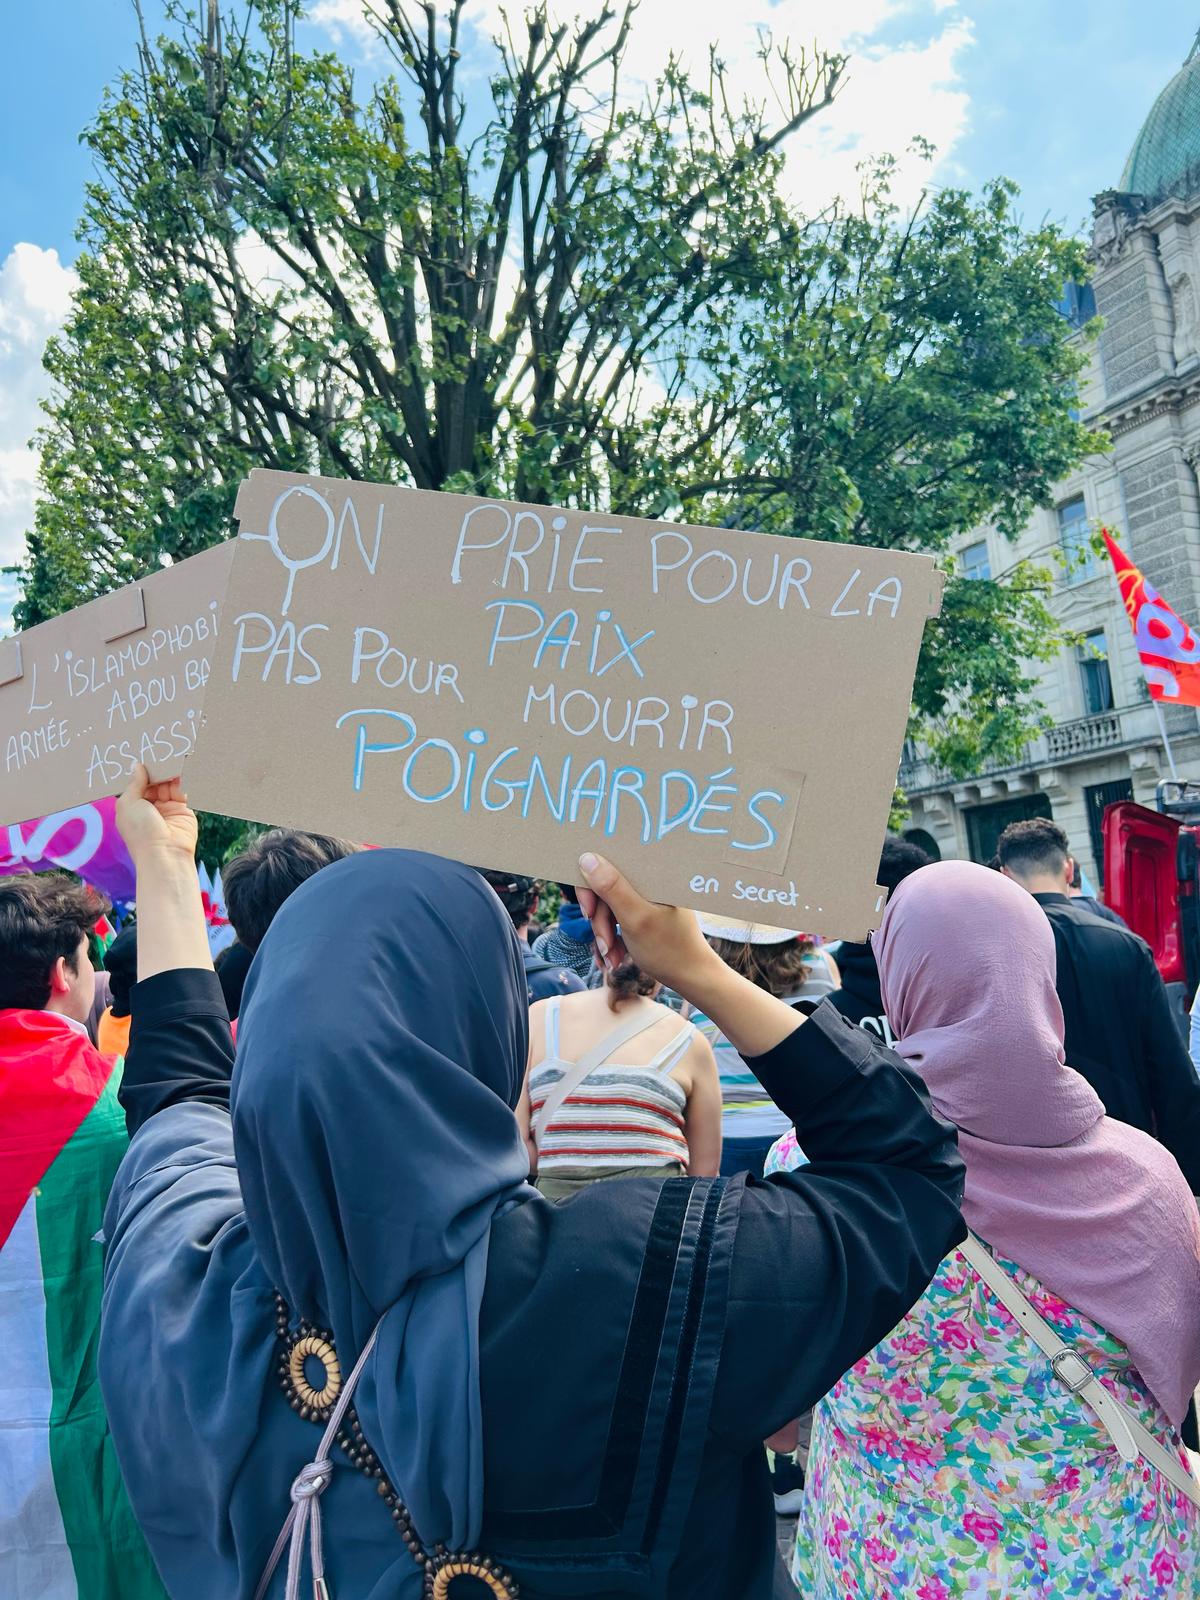 ON PRiE POUR LA
PAiX
PAS POUR MOURiR
POiGNARDÉS
en secret..
L'iSLAMOPHOBi
ARMÉE... ABOU BA
ASSASSi